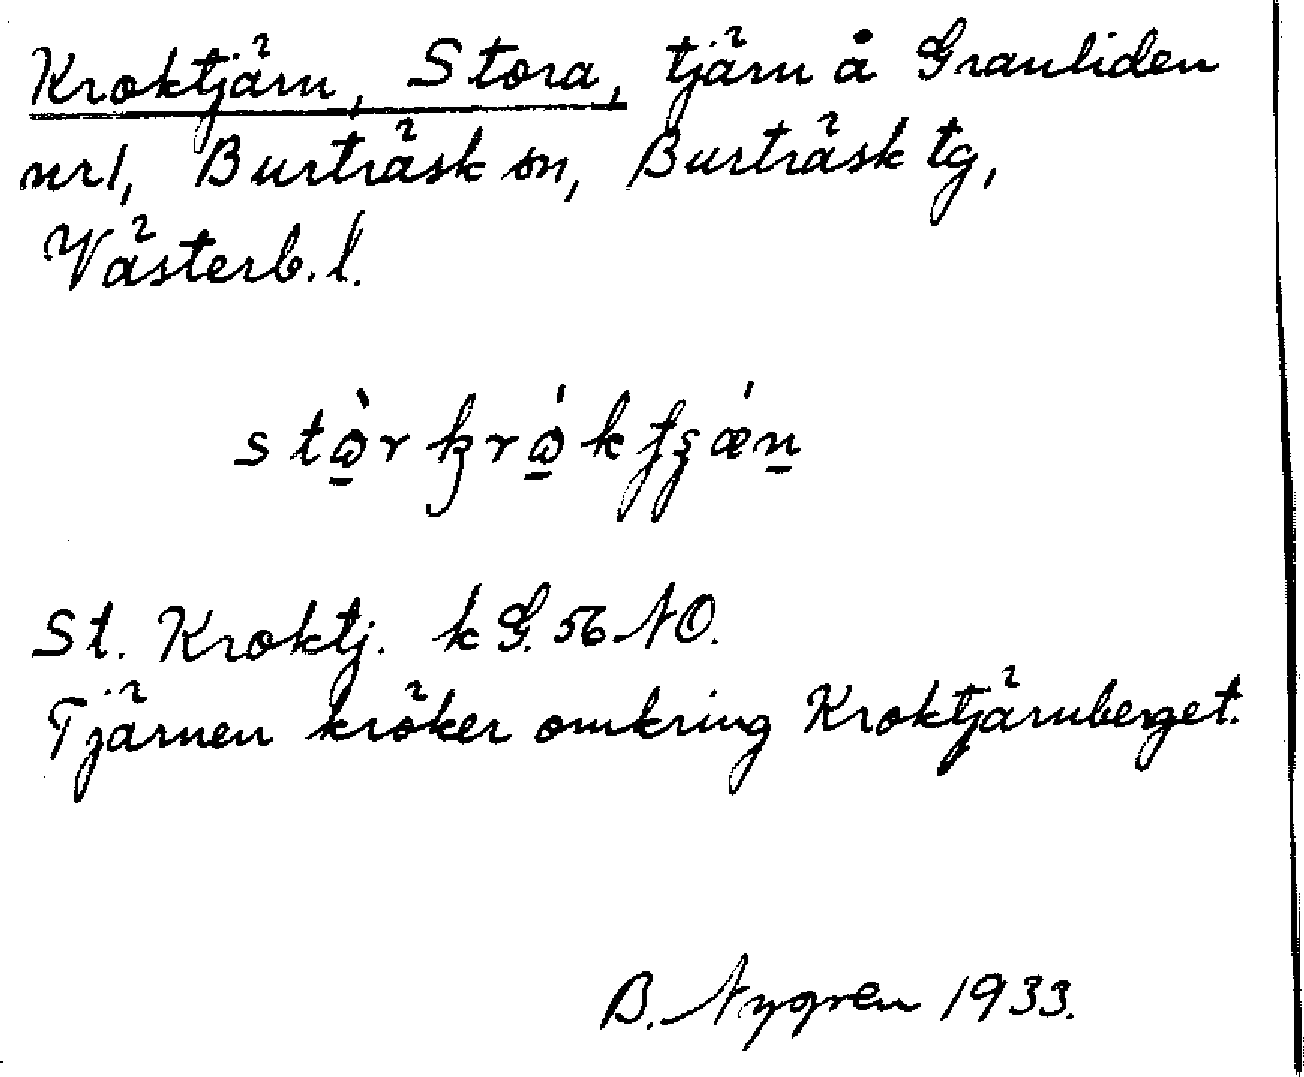 Kroktjärn, Stora, tjärn å Granliden
nr 1, Burträsk sn, Burträsk tg,
Västerb. l.
St. Kroktj. k G. 56 NO.
Tjärnen kröker omkring Kroktjärnberget.
B. Nygren 1933.